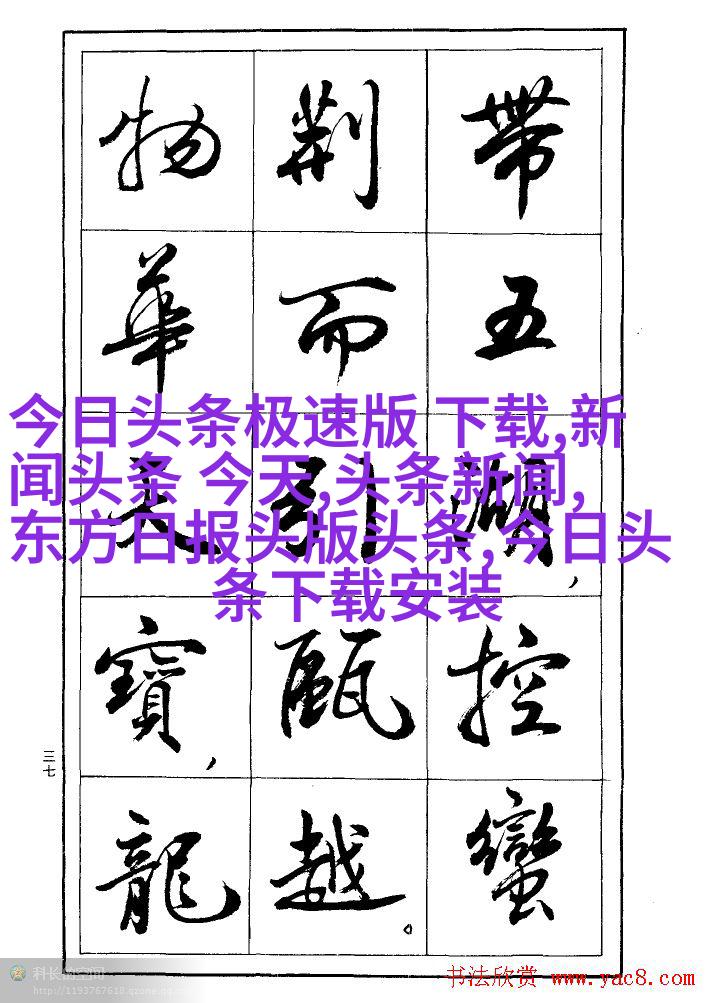 带五湖,控蠻
荆而引甌越。
物華天寶,龍
今日头条极速版 下载,新
闻头条 今天,头条新闻,
东方日报头版头条,今日头
条下载安装
三七
科长的空间
http://1193767618.qzone.qq.co
书法欣赏 www.yac8.com